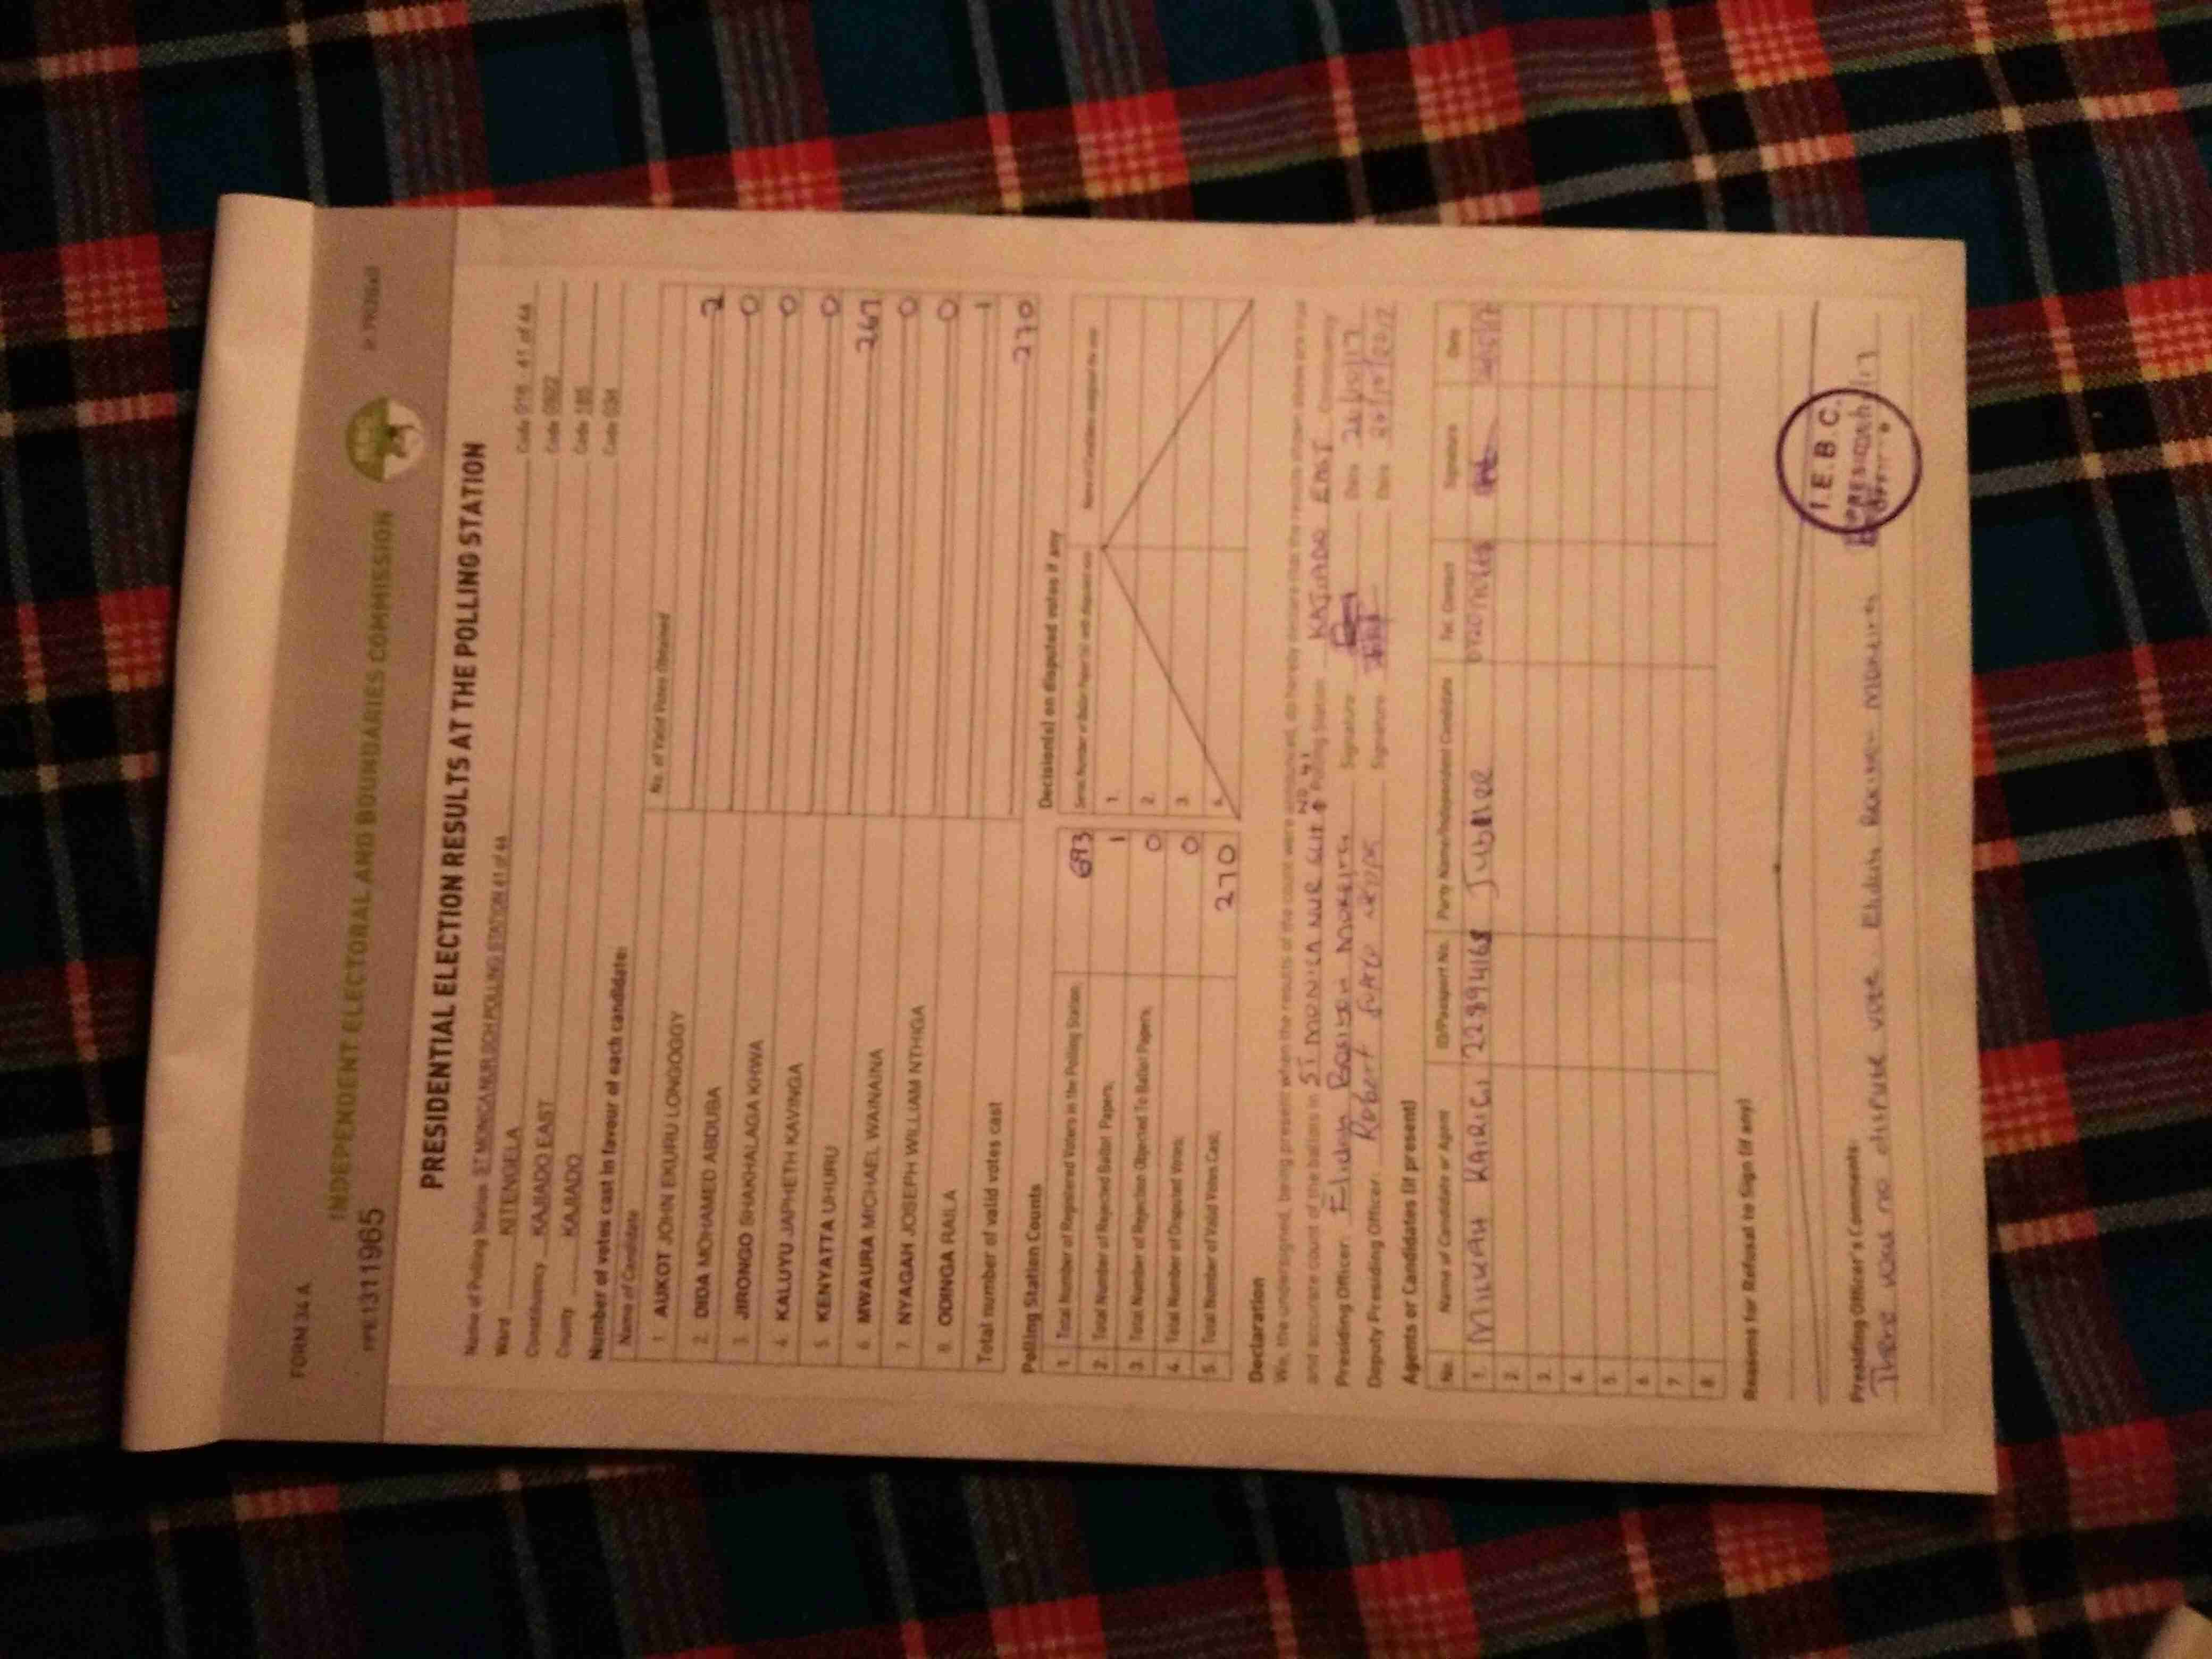 FORM 34 A
INDEPENDENT ELECTORAL AND BOUNDARIES COMMISSION
PPE1311965
PRESIDENTIAL ELECTION RESULTS AT THE POLLING STATION
Name of Polling Station ST MONICA NUR SCH POLLING STATION 41 of 44 Code 018 . 41 of 44
Ward KITENGELA Code 0922
Constituency KAJIADO EAST Code 185
County KAJIADO Code 034
Number of votes cast in favor of each candidate:
Name of Candidate No. of Valid Votes Obtained
1. AUKOT JOHN EKURU LONGOGGY 2
2. DIDA MOHAMED ABDUBA 0
3. JIRONGO SHAKHALAGA KHWA 0
4. KALUYU JAPHETH KAVINGA 0
5. KENYATTA UHURU 267
6. MWAURA MICHAEL WAINAINA 0
7. NYAGAH JOSEPH WILLIAM NTHIGA 0
8. ODINGA RAILA 1
Total number of valid votes cast 270
Polling Station Counts
1. Total Number of Registered Voters in the Polling Station 693
2. Total Number of Rejected Ballot Papers 1
3. Total Number of Rejection Objected To Ballot Papers 0
4. Total Number of Disputed Votes 0
5. Total Number of Valid Votes Cast 270
Decision(s) on disputed votes if any
1.
2.
3.
4.
Declaration
We, the undersigned, being present when the results of the count were announced, do hereby declare that the results shown above are true
and accurate count of the ballots in ST MONICA NUR SCH NO 41 Polling Station KAJIADO EAST Constituency
Presiding Officer: Signature Date 26/10/17
Deputy Presiding Officer: Robert Signature Date
Agents or Candidates (if present)
No. Name of Candidate or Agent ID/Passport No. Party Name/Independent Candidate Tel. Contact Signature Date
1. MILKAH KARICI 22894168 Jubilee
2.
3.
4.
5.
6.
7.
8.
Reasons for Refusal to Sign (if any)
Presiding Officer's Comments:
There was no dispute
I.E.B.C.
PRESIDING
OFFICER